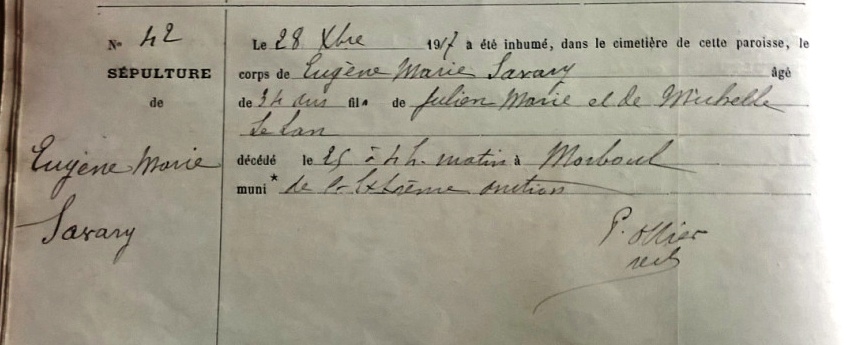 N° 42
SÉPULTURE
de
Eugène Marie
Savary
Le 28 Xbre 1917 a été inhumé, dans le cimetière de cette paroisse, le
corps de Eugène Marie Savary âgé
de 34 ans fils de Julien Marie et de Michelle
Le Lan
décédé le 25 à 4 h. matin à
muni * de l'Extrême onction
P. Ollier
rect